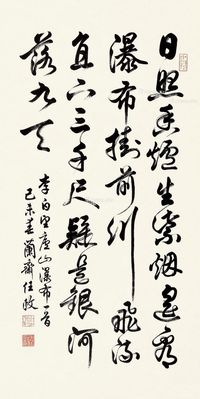 日照香爐生紫烟遙看
瀑布掛前川飛流
直下三千尺疑是銀河
落九天
李白望廬山瀑布一首
己未春蘭齋任政